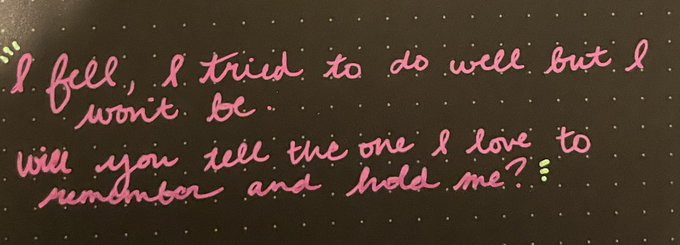 "I fell, I tried to do well but I
won't be.
Will you tell the one I love to
remember and hold me?"